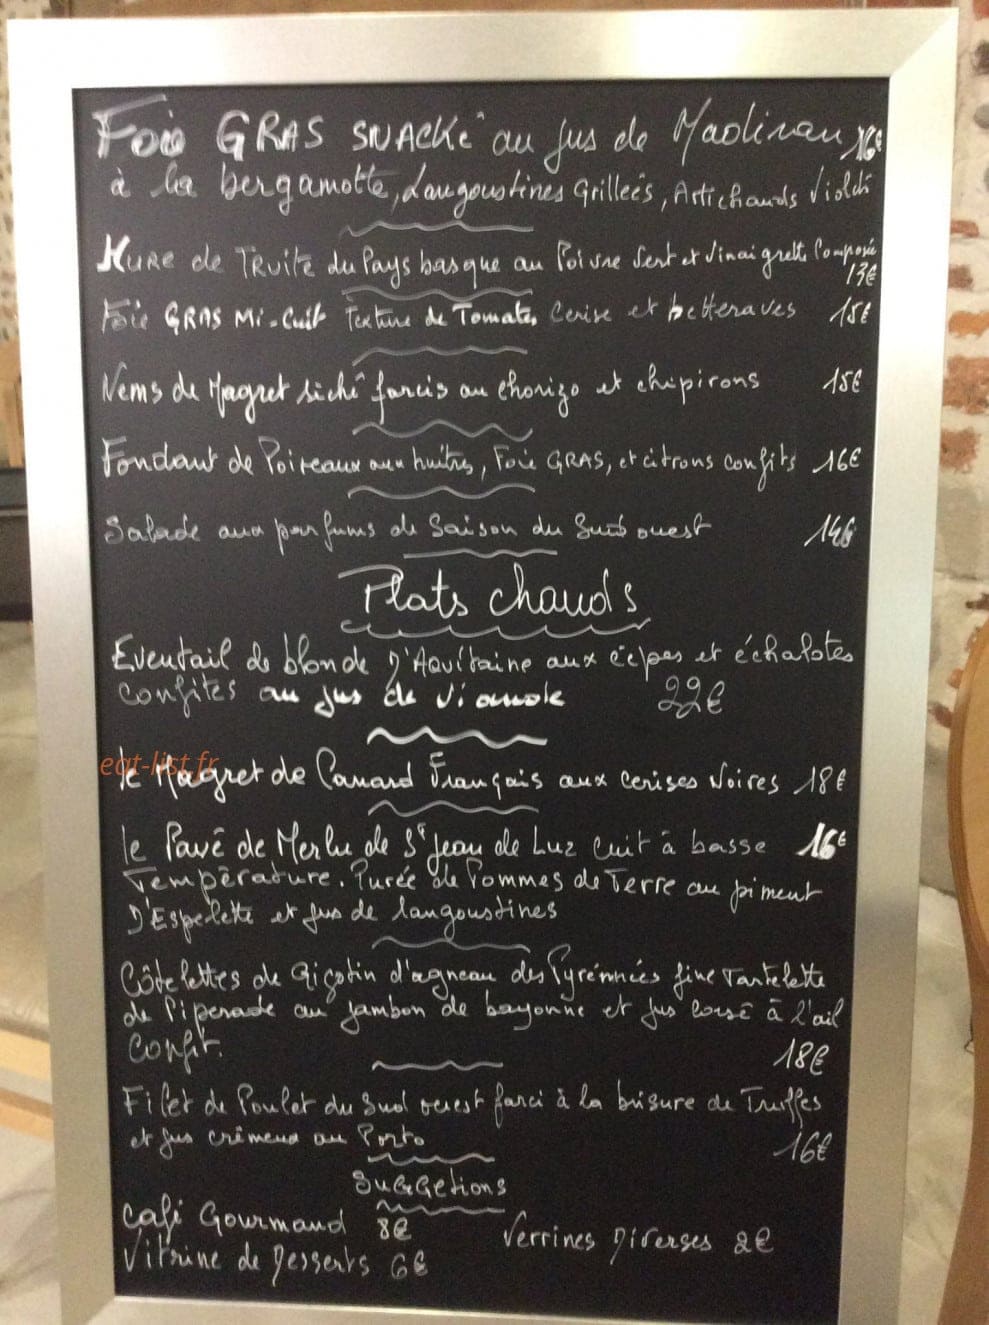 Foie GRAS SNACKé au jus de Madiran 16€
à la bergamotte, Langoustines Grilleés, Artichauds Violet
HURE de TRUITE du Pays basque au Poivre Vert et Vinaigrette Composée
13€
Foie GRAS Mi-Cuit Texture de Tomates Cerise et betteraves 15€
Nems de Magret siché farcis au Chorizo et chipirons 15€
Fondant de Poireaux aux huitres, Foie GRAS, et citrons confits 16€
Salade aux parfums de Saison du Sud ouest 14€
Plats chauds
Eventail de blonde D'Aquitaine aux cèpes et échalotes
confites au jus de viande 22€
eat-list.fr
le Magret de Canard Français aux cerises Noires 18€
le Pavé de Merlu de St Jean de Luz Cuit à basse 16€
Température. Purée de Pommes de Terre au piment
D'Espelette et jus de langoustines
Côtelettes de Gigotin d'agneau des Pyrénnées fine Tartelette
de Piperade au jambon de bayonne et jus corsé à l'ail
Confit.
18€
Filet de Poulet du Sud ouest farci à la brisure de Truffes
et jus crémeux au Porto
16€
SuGGetions
Café Gourmand 8€
Verrines Diverses 2€
Vitrine de Desserts 6€